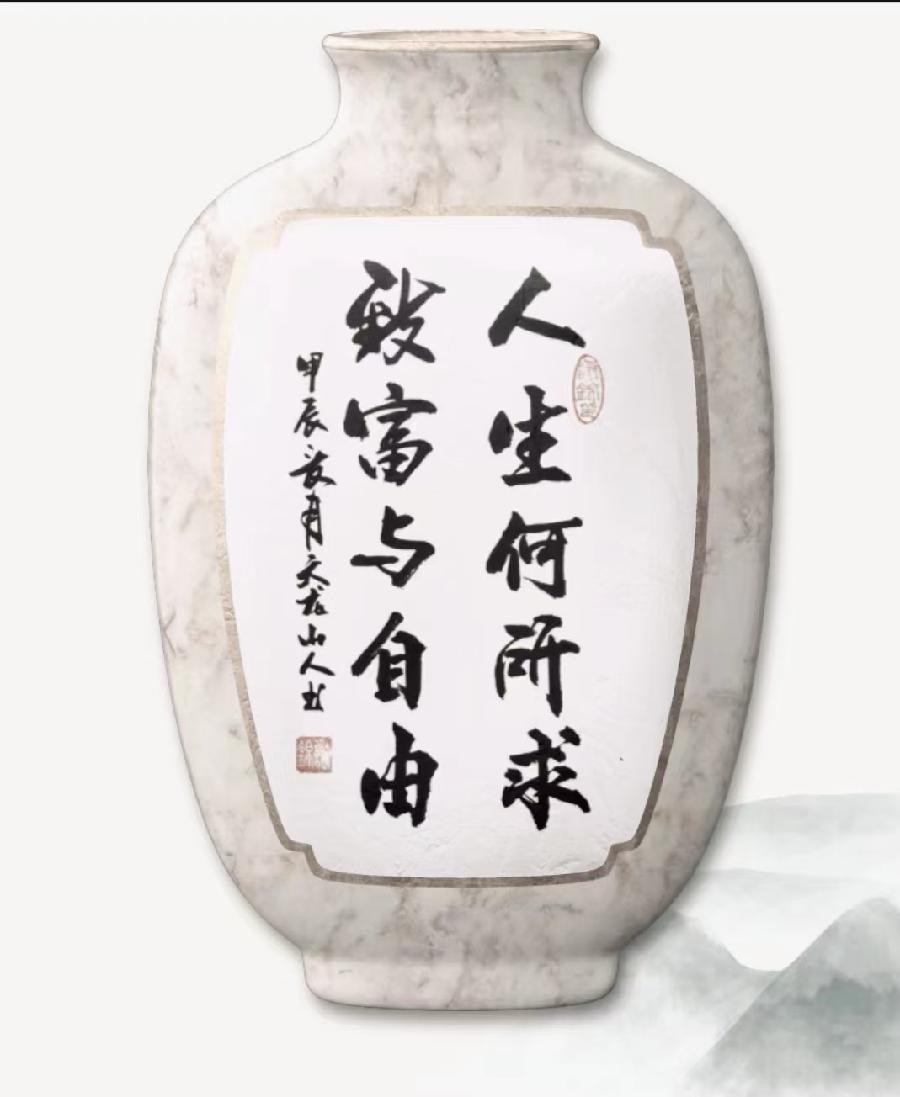 人生何所求
致富与自由
甲辰
天龙山人书